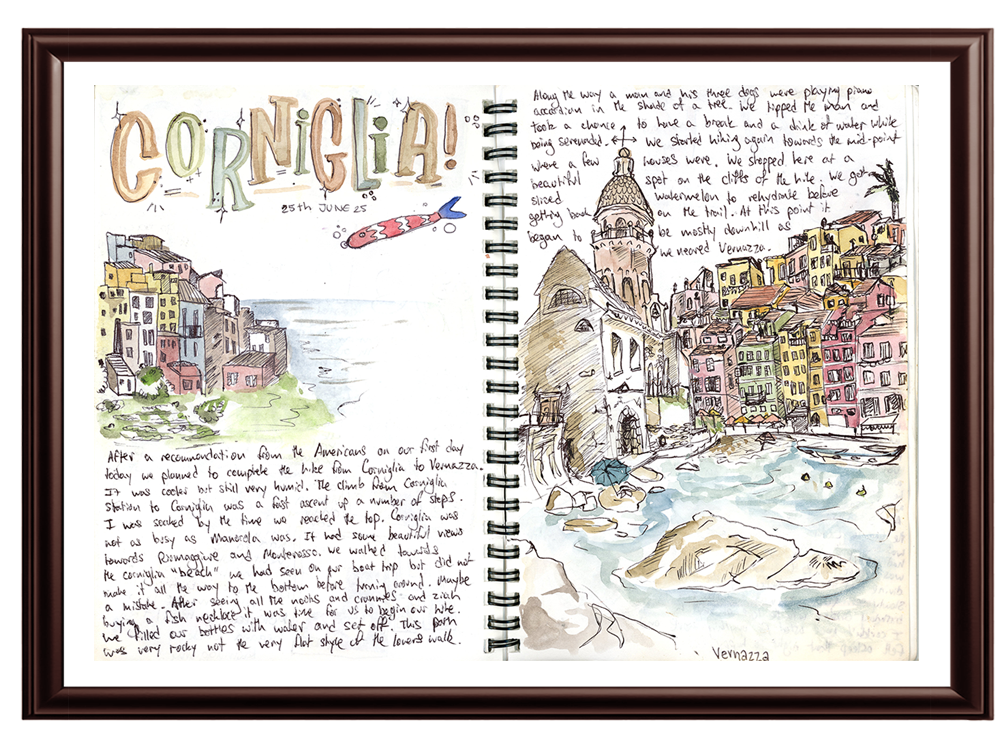 CORNIGLIA!
25th JUNE 25
After a recommendation from the Americans on our first day
today we planned to complete the hike from Corniglia to Vernazza.
It was cooler but still very humid. The climb from Corniglia
station to Corniglia was a fast ascent up a number of steps.
I was soaked by the time we reached the top. Corniglia was
not as busy as Manarola was. It had some beautiful views
towards Riomaggiore and Monterosso. We walked towards
the corniglia "beach" we had seen on our boat trip but did not
make it all the way to the bottom before turning around. Maybe
a mistake. After seeing all the nooks and crannies and
buying a fish necklace it was time for us to begin our hike.
We filled our bottles with water and set off. This path
was very rocky not the very flat style of the lovers walk.
Along the way a man and his three dogs were playing piano
accordion in the shade of a tree. We tipped the man and
took a chance to have a break and a drink of water while
being serenaded. We started hiking again towards the mid-point
where a few houses were. We stopped here at a
beautiful spot on the cliffs of the hike. We got
sliced watermelon to rehydrate before
getting back on the trail. At this point it
began to be mostly downhill as
we neared Vernazza.
Vernazza